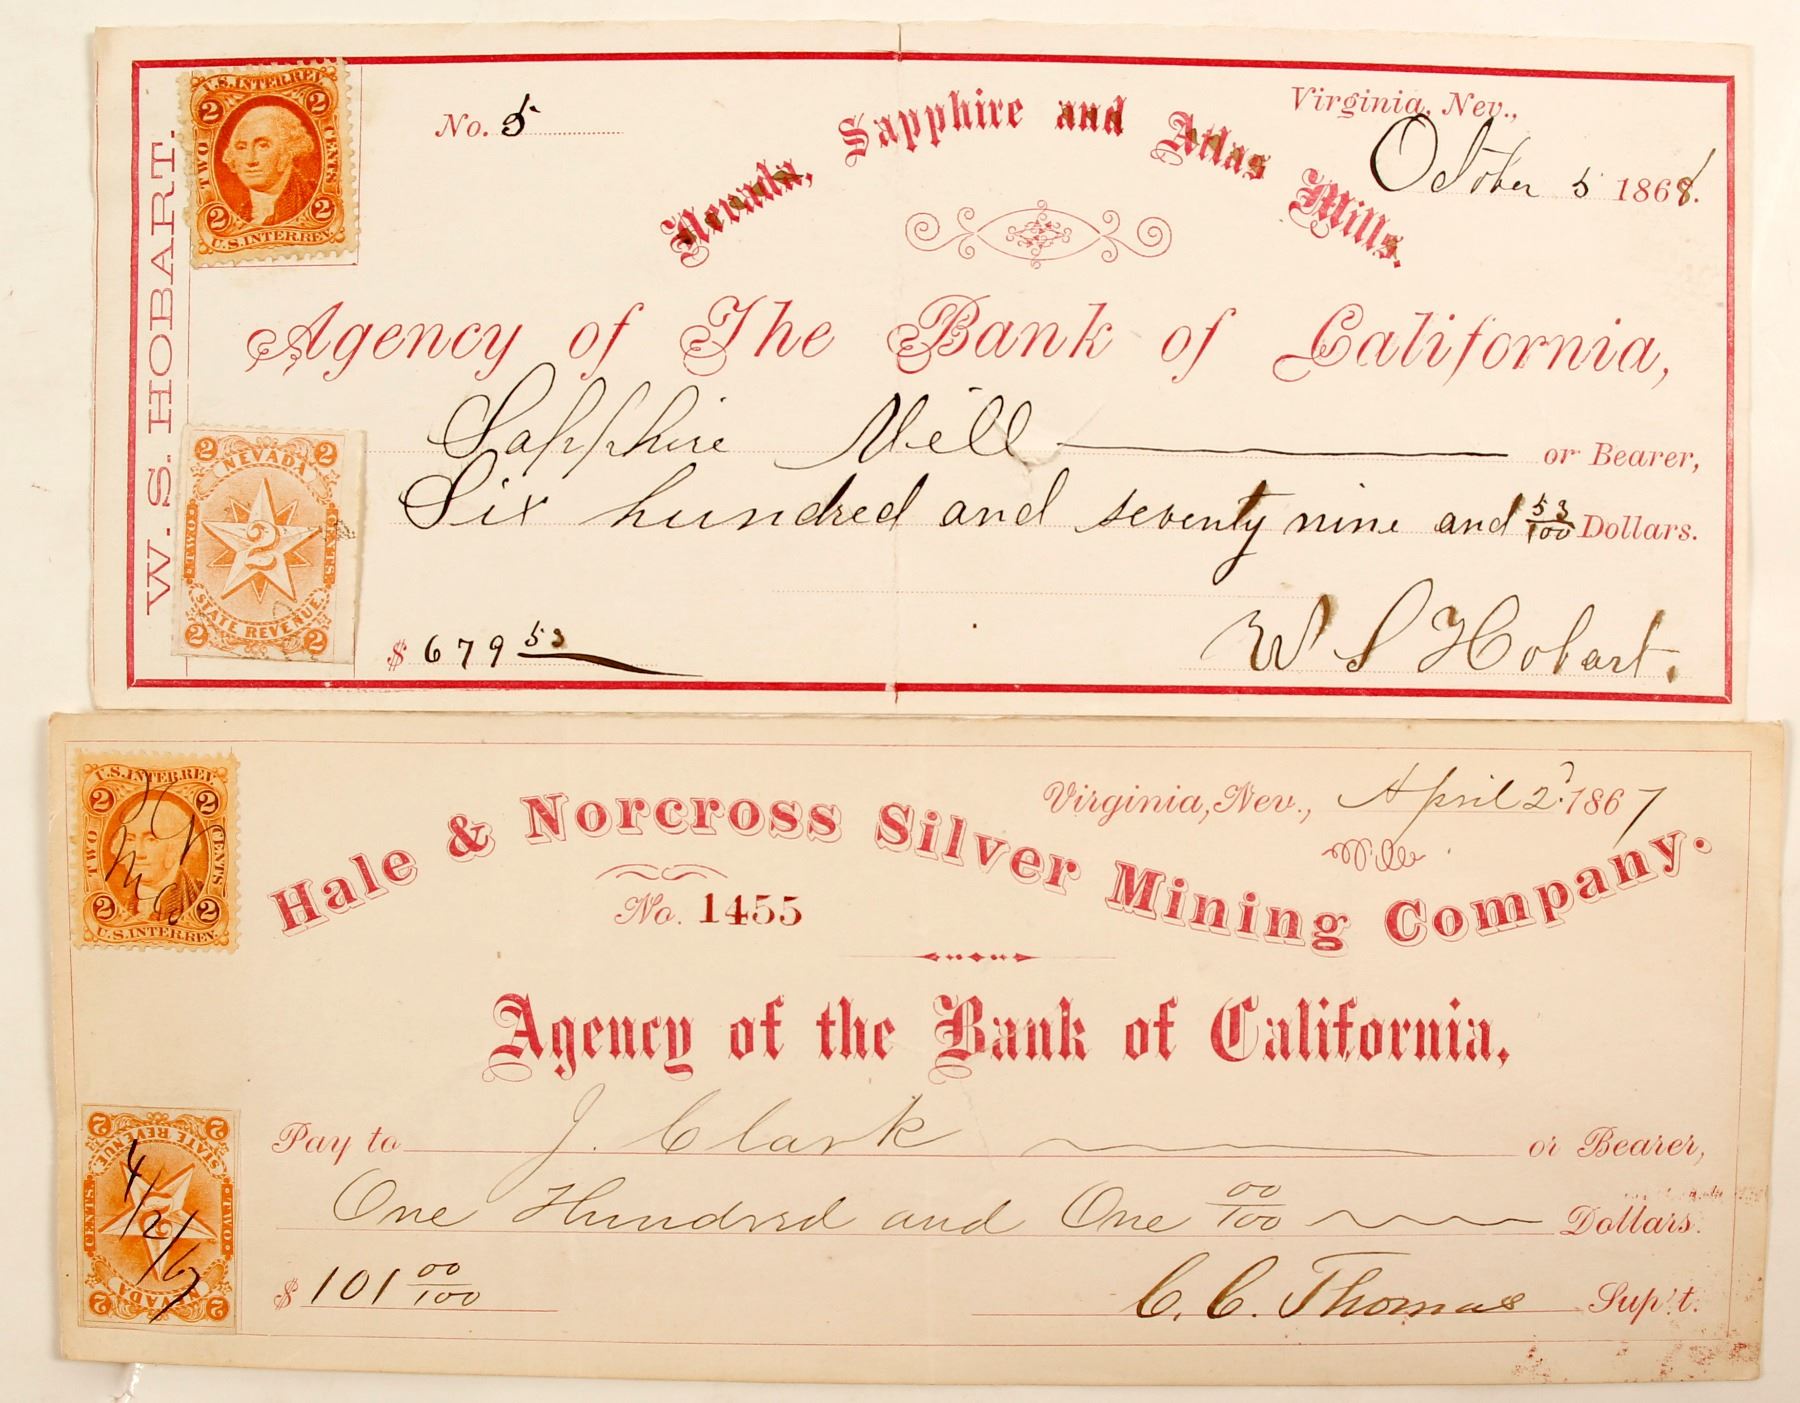 W. S. HOBART.
U.S. INTER. REV.
2 2
TWO CENTS
2 2
U.S. INTER. REV.
No. 5
Nevada, Sapphire and Atlas Mills.
Virginia, Nev.,
October 5 1868.
Agency of The Bank of California,
Sapphire Mill or Bearer,
Six hundred and seventy nine and 53/100 Dollars.
2 2
NEVADA
TWO CENTS.
2
STATE REVENUE.
2 2
$ 679 53
W S Hobart.
U.S. INTER. REV.
2 2
TWO CENTS
2 2
U.S. INTER. REV.
Virginia, Nev., April 2d 1867
Hale & Norcross Silver Mining Company.
No. 1455
Agency of the Bank of California.
Pay to J. Clark or Bearer,
One Hundred and One 00/100 Dollars.
$ 101 00/100
C. C. Thomas Sup't.
2 2
STATE REVENUE.
CENTS. TWO
2
4/2/67
NEVADA
2 2